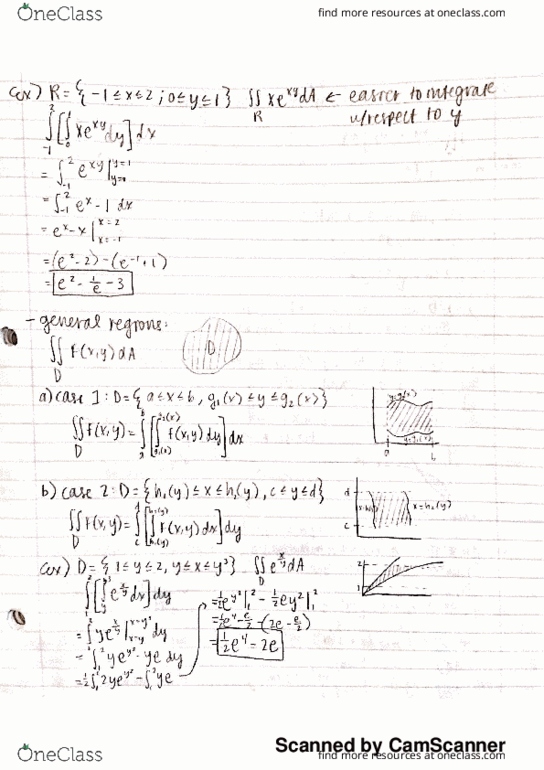 OneClass find more resources at oneclass.com
ex) R = { -1 ≤ x ≤ 2 ; 0 ≤ y ≤ 1 } ∬_R xe^{xy} dA ← easier to integrate
w/respect to y
∫_{-1}^{2} [∫_0^1 xe^{xy} dy] dx
= ∫_{-1}^{2} e^{xy} |_{y=0}^{y=1}
= ∫_{-1}^{2} e^x - 1 dx
= e^x - x |_{x=-1}^{x=2}
= (e^2 - 2) - (e^{-1} + 1)
= e^2 - 1/e - 3
- general regions:
∬_D f(x,y) dA D
a) case 1: D = { a ≤ x ≤ b, g₁(x) ≤ y ≤ g₂(x) }
∬_D f(x,y) = ∫_a^b [∫_{g₁(x)}^{g₂(x)} f(x,y) dy] dx
b) case 2: D = { h₁(y) ≤ x ≤ h₂(y), c ≤ y ≤ d }
∬_D f(x,y) = ∫_c^d [∫_{h₁(y)}^{h₂(y)} f(x,y) dx] dy
d
c
x = h₂(y)
ex) D = { 1 ≤ y ≤ 2, y ≤ x ≤ y³ } ∬_D e^{x/y} dA
∫_1^2 [∫_y^{y³} e^{x/y} dx] dy
= ∫_1^2 ye^{x/y} |_{x=y}^{x=y³} dy
= ∫_1^2 ye^{y²} - ye dy
= ½ ∫_1^2 2ye^{y²} - ∫_1^2 ye
= ½ e^{y²} |_1^2 - ½ ey² |_1^2
= ½ e^4 - e/2 - (2e - e/2)
= ½ e^4 - 2e
2
1
Scanned by CamScanner
OneClass find more resources at oneclass.com